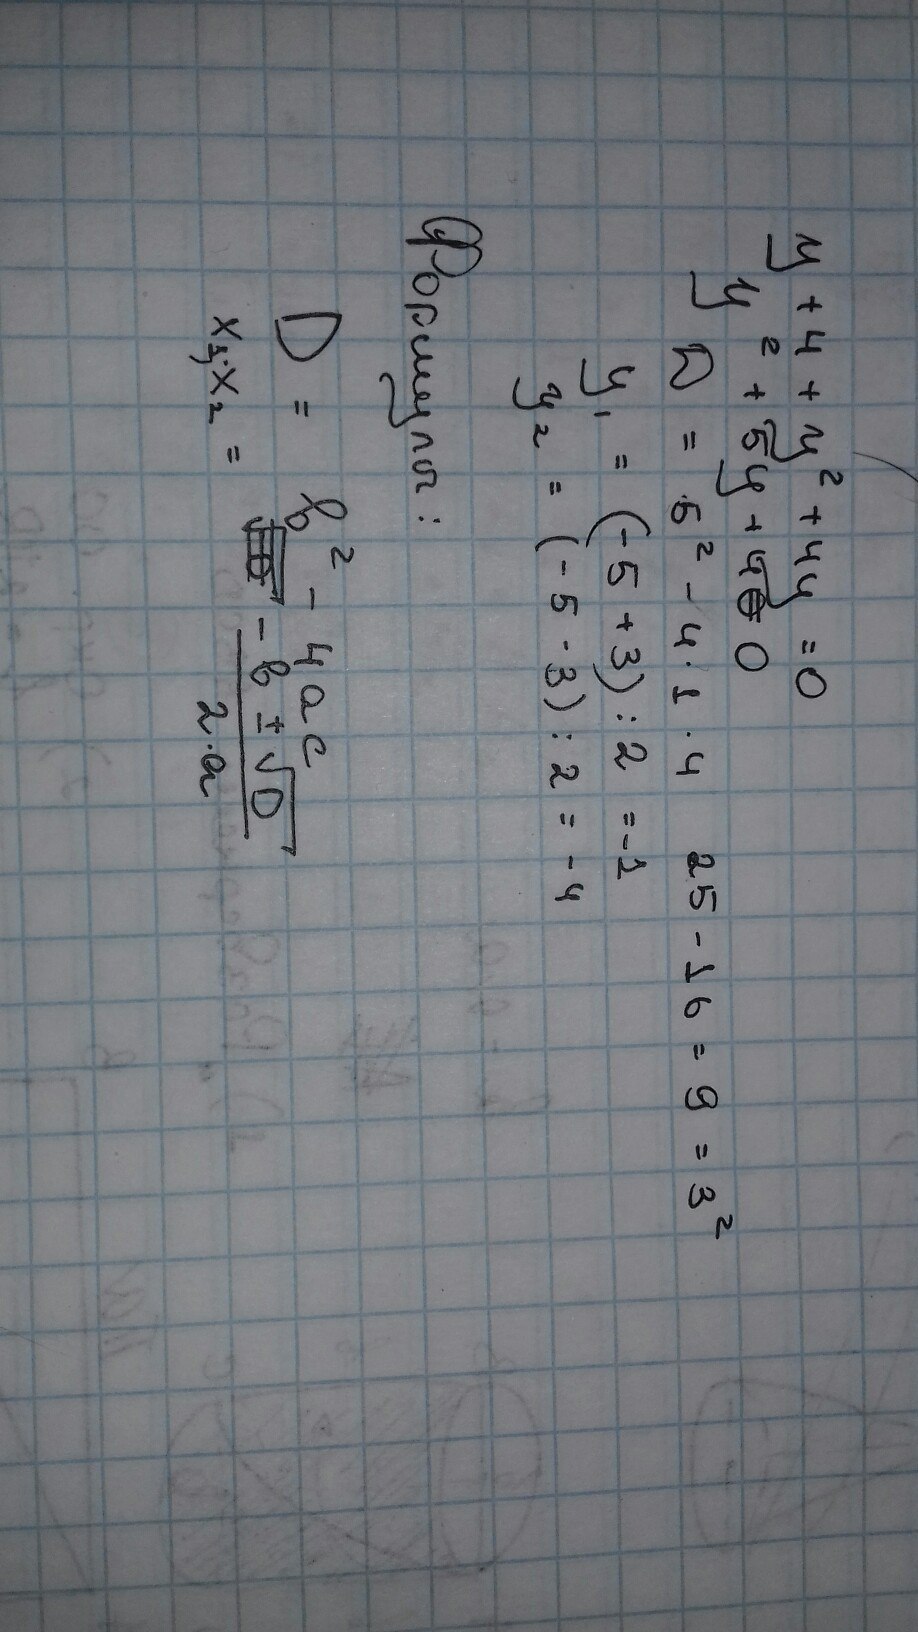 y + 4 + y² + 4y = 0
y² + 5y + 4 = 0
D = 5² - 4·1·4 25 - 16 = 9 = 3²
y₁ = (-5 + 3) : 2 = -1
y₂ = (-5 - 3) : 2 = -4
Формулы:
D = b² - 4ac
x₁; x₂ = -b ± √D
2·a